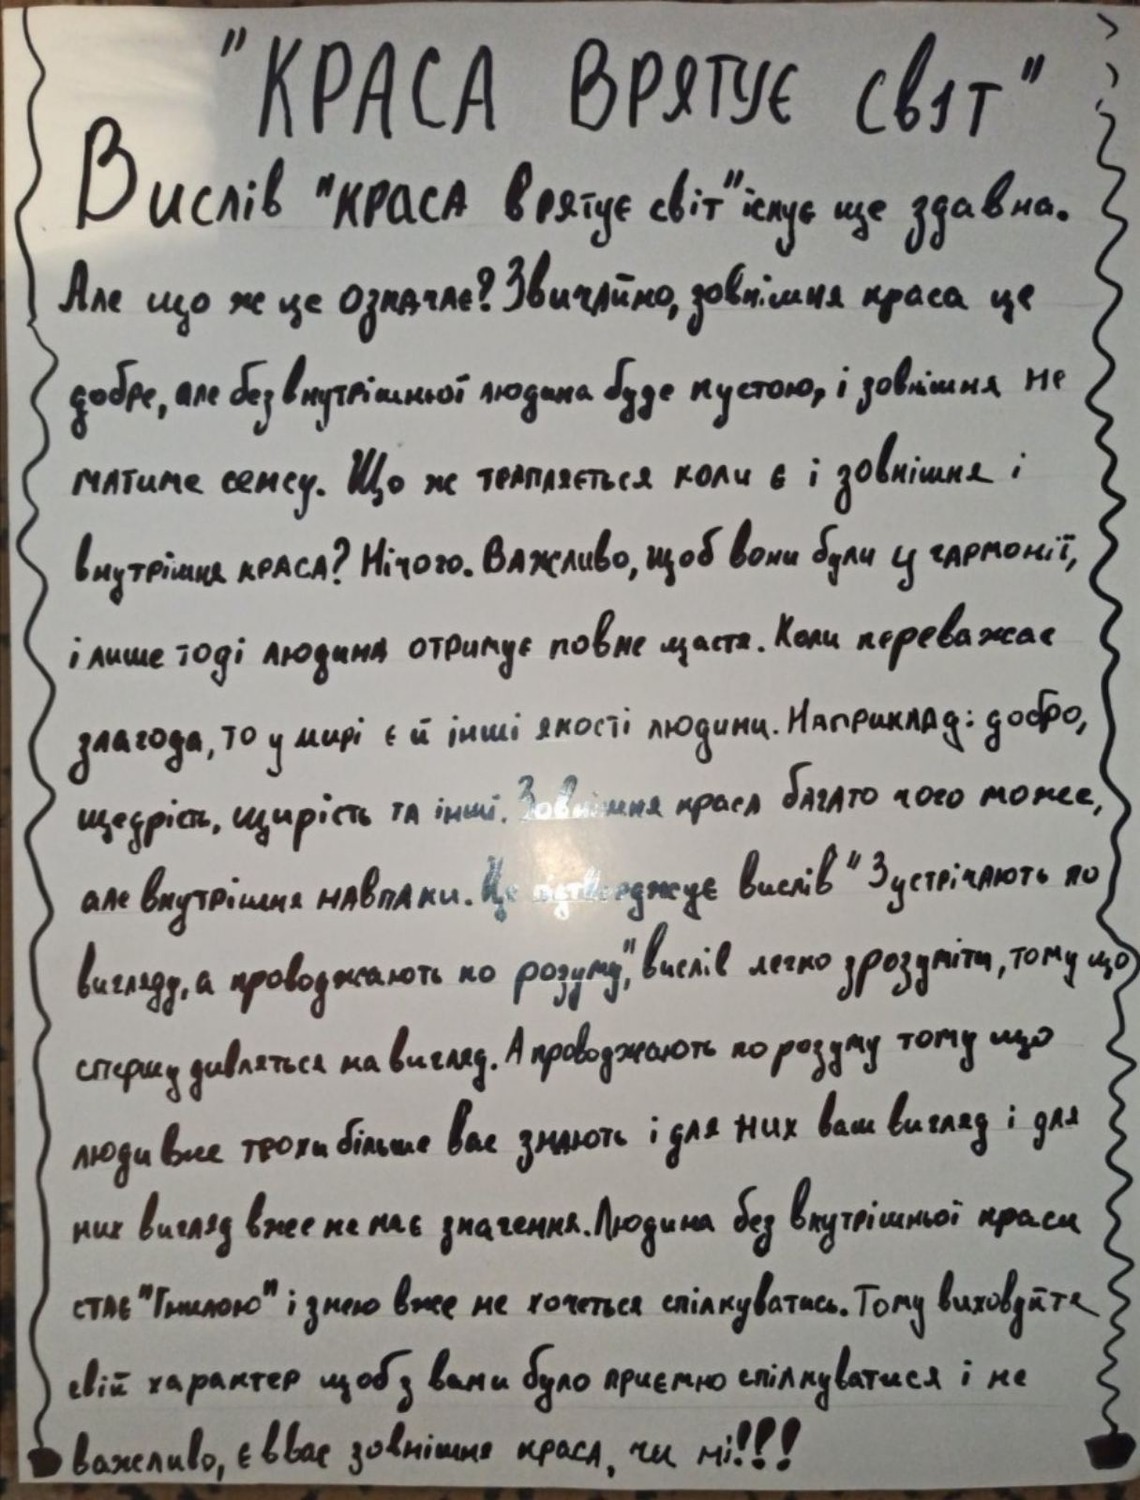 "КРАСА ВРЯТУЄ СВІТ"
Вислів "КРАСА врятує світ" існує ще здавна.
Але що ж це означає? Звичайно, зовнішня краса це
добре, але без внутрішньої людина буде пустою, і зовнішня не
матиме сенсу. Що ж трапляється коли є і зовнішня і
внутрішня краса? Нічого. Важливо, щоб вони були у гармонії,
і лише тоді людина отримує повне щастя. Коли переважає
злагода, то у мирі є й інші якості людини. Наприклад: добро,
щедрість, щирість та інші. Зовнішня краса багато чого може,
але внутрішня навпаки. Це підтверджує вислів "Зустрічають по
вигляду, а проводжають по розуму", вислів легко зрозуміти, тому що
спершу дивляться на вигляд. А проводжають по розуму тому що
люди вже трохи більше вас знають і для них ваш вигляд і для
них вигляд вже не має значення. Людина без внутрішньої краси
стає "Гнилою" і з нею вже не хочеться спілкуватись. Тому виховуйте
свій характер щоб з вами було приємно спілкуватися і не
важливо, є в вас зовнішня краса, чи ні!!!